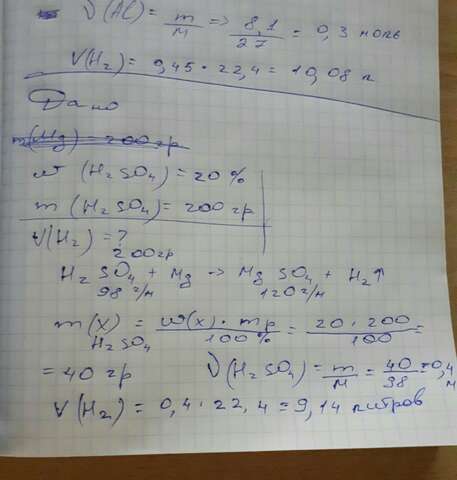 ν(Al) = m/M => 8,1/27 = 0,3 моль
V(H₂) = 0,45 · 22,4 = 10,08 л
Дано
m(Mg) = 200 гр
ω (H₂SO₄) = 20 %
m (H₂SO₄) = 200 гр
V(H₂) = ?
200гр
H₂SO₄ + Mg → MgSO₄ + H₂↑
98 г/м 120 г/м
m(x) = ω(x) · mр / 100 % = 20 · 200 / 100 =
H₂SO₄
= 40 гр ν(H₂SO₄) = m/M = 40/98 = 0,4 м
V(H₂) = 0,4 · 22,4 = 9,14 литров